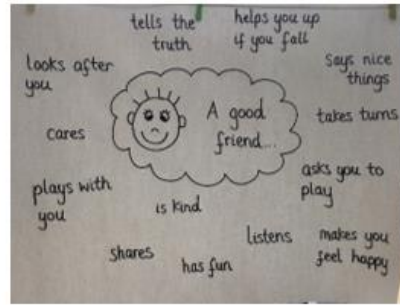 tells the
truth
helps you up
if you fall
says nice
things
looks after
you
A good
friend...
takes turns
cares
asks you to
play
plays with
you
is kind
listens
makes you
feel happy
shares
has fun